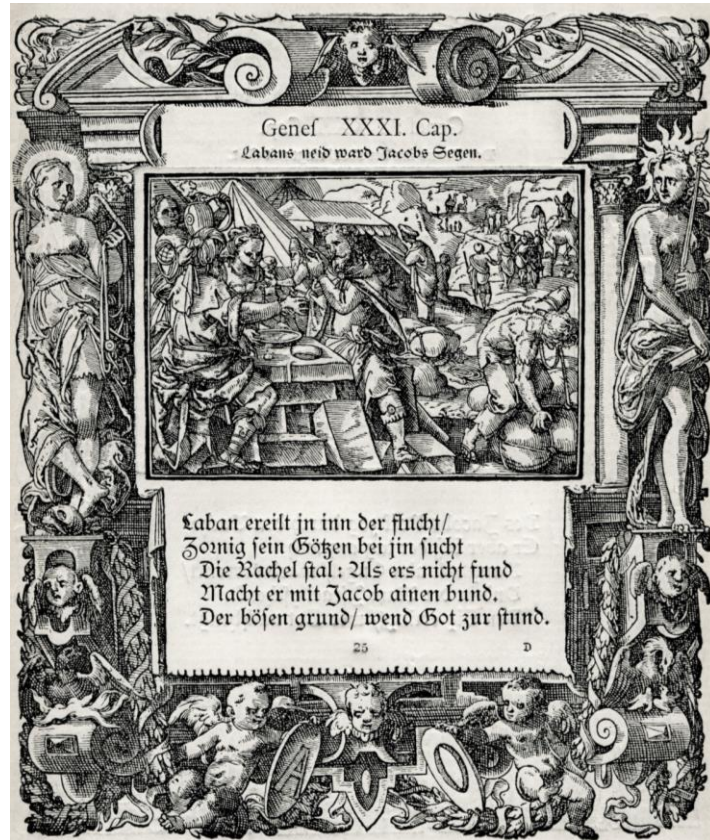 Geneſ XXXI. Cap.
Labans neid ward Jacobs Segen.
Laban ereilt jn inn der flucht/
Zornig ſein Götzen bei jin ſucht
Die Rachel ſtal: Als ers nicht fund
Macht er mit Jacob ainen bund.
Der böſen grund/ wend Got zur ſtund.
25 D
A O